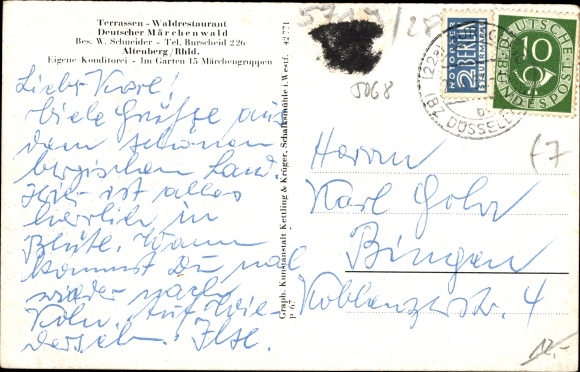 Terrassen - Waldrestaurant
Deutscher Märchenwald
Bes. W. Schneider - Tel. Burscheid 226
Altenberg/Rhld.
Eigene Konditorei - Im Garten 15 Märchengruppen
Lieber Karl!
Viele Grüße aus
dem schönen
bergischen Land.
Hier ist alles
herrlich in
Blüte. Wann
kommst Du mal
wieder nach
Köln. Auf Wie-
dersehn. Ilse.
Graph. Kunstanstalt Kettling & Krüger, Schalksmühle i. Westf. 42 771
P 67
5068
NOTOPFER
2 BERLIN
STEUERMARKE
DEUTSCHE
10
BUNDESPOST
(22a)
DÜSSELD
Herrn
Karl Gohr
Bingen
Koblenzerstr. 4
(7
12,-